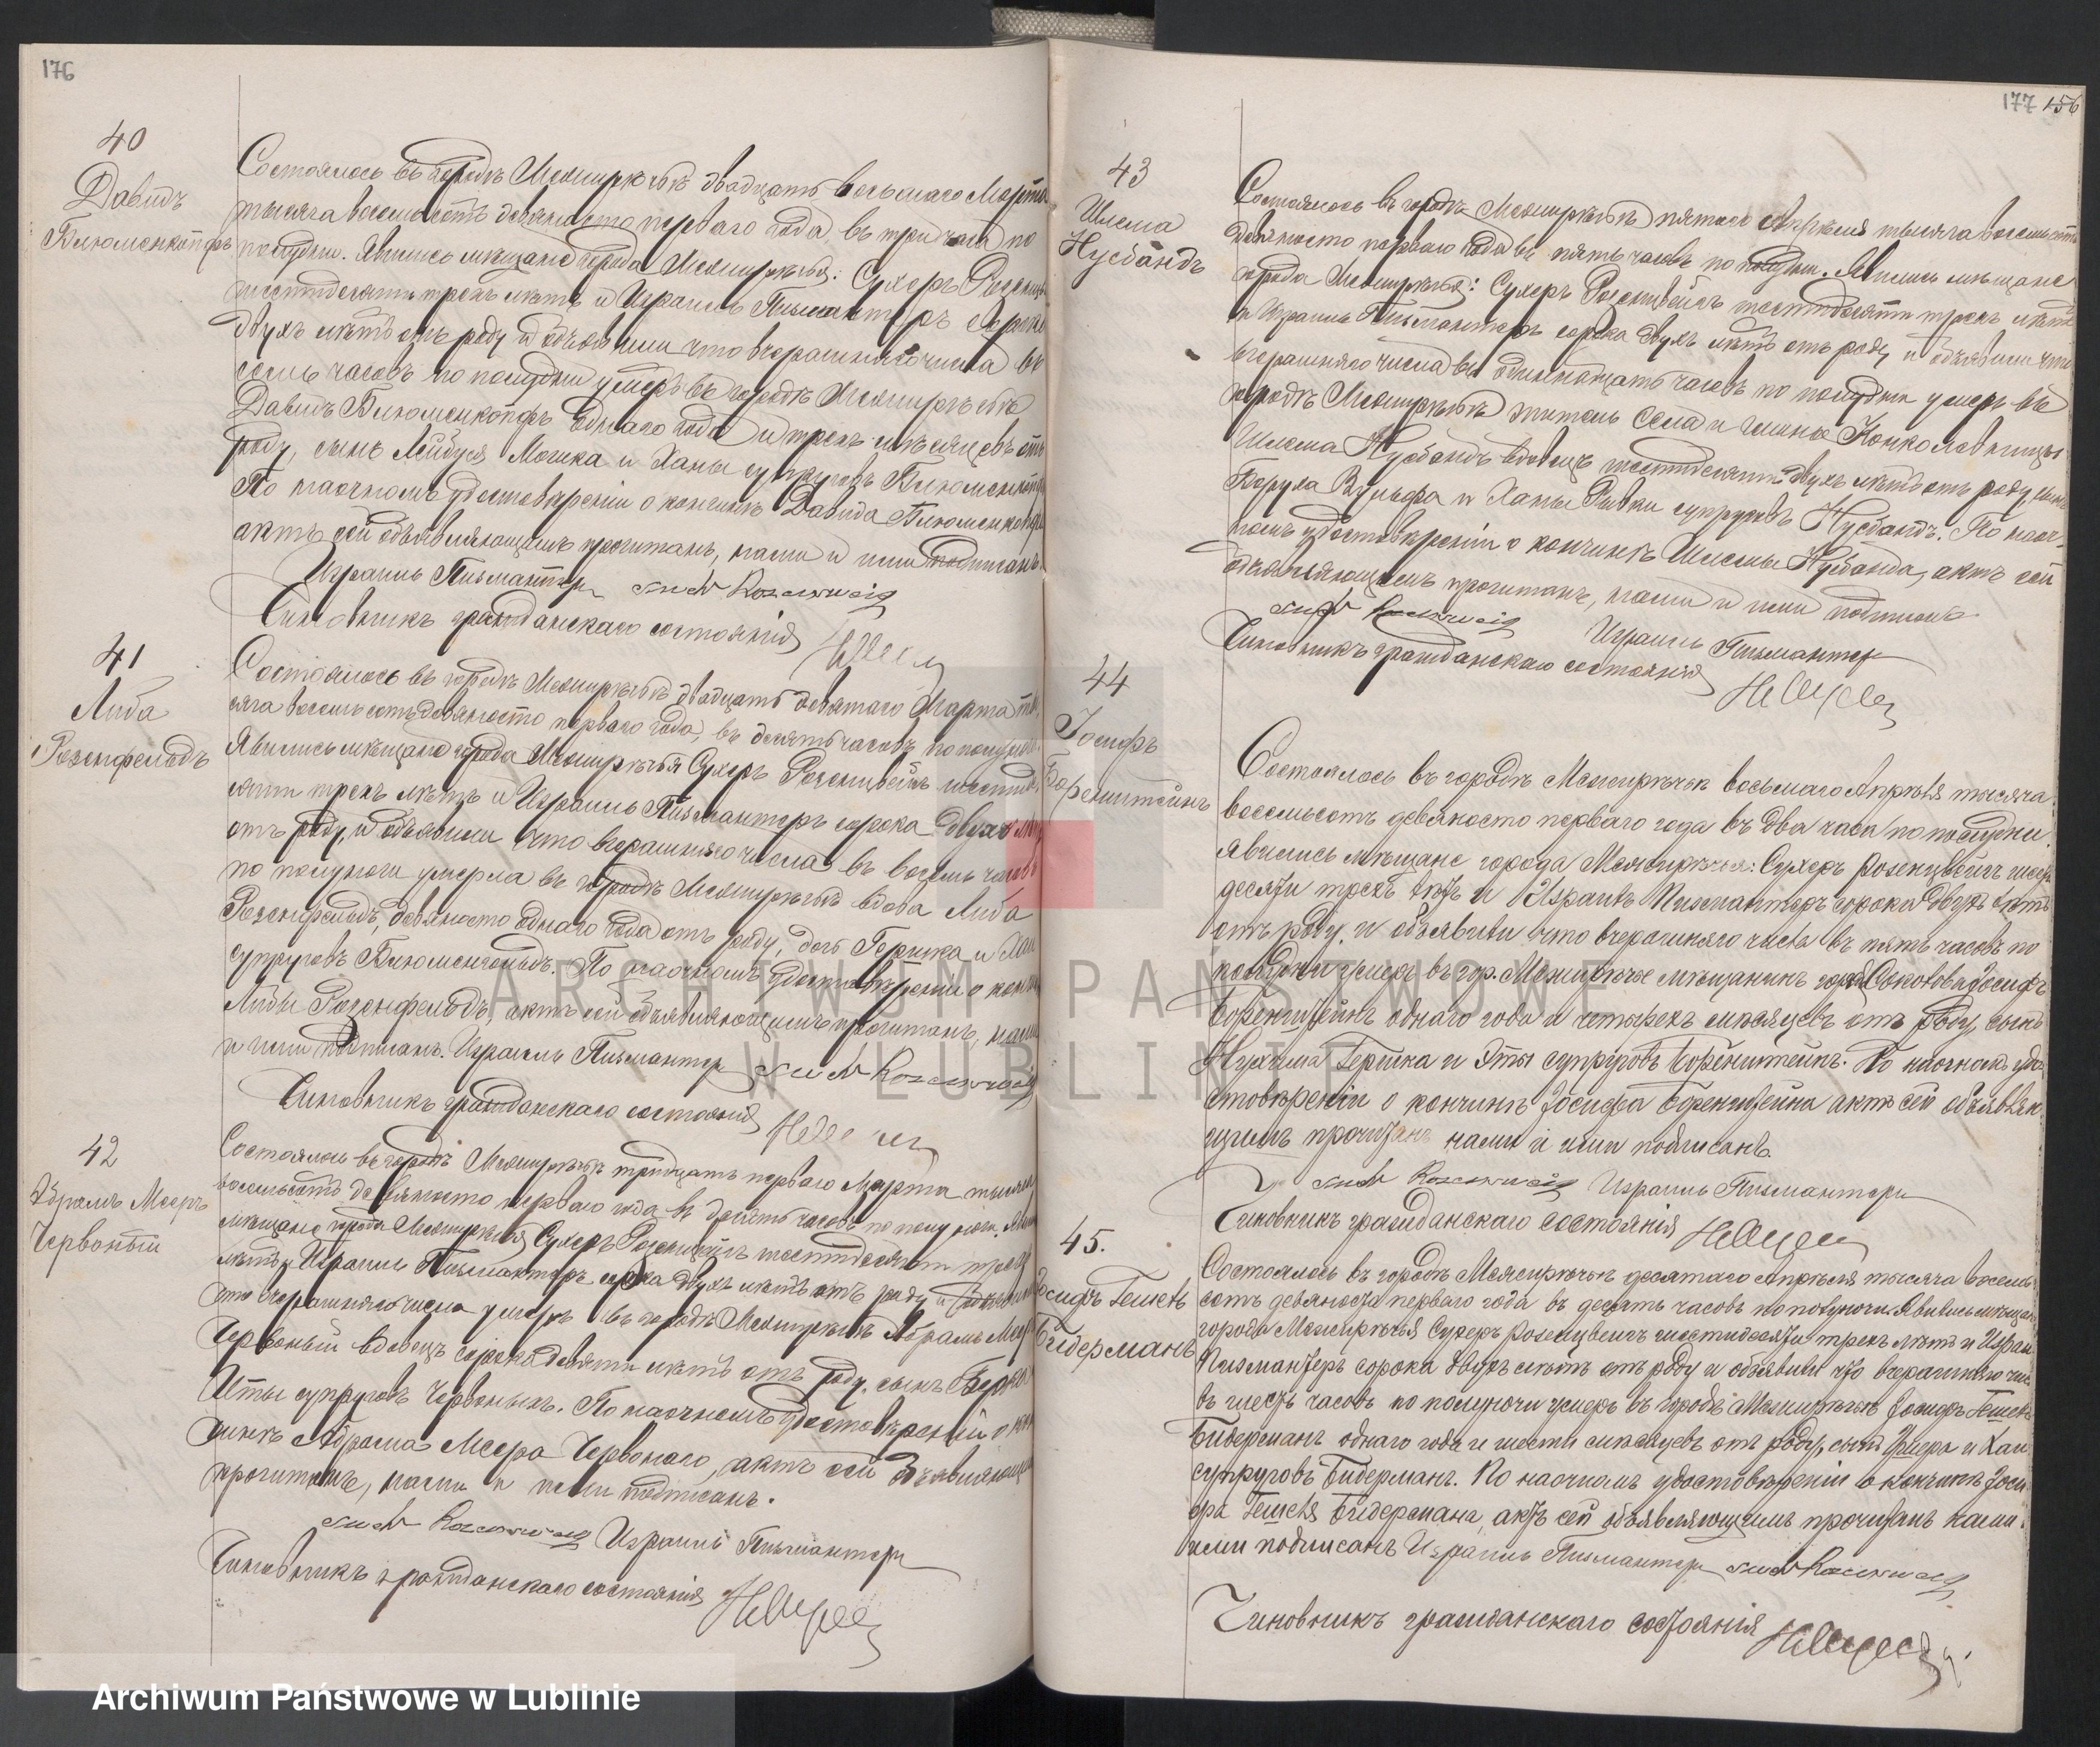 176
40
Давидъ
Блюменкопфъ
Состоялось въ городѣ Межирѣчьѣ двадцать восьмаго Марта
тысяча восемьсотъ девяносто перваго года, въ три часа по
полудни. Явились мѣщане города Межирѣчья: Сухеръ Розенцв
шестидесяти трехъ лѣтъ и Израиль Писмантеръ сорока
двухъ лѣтъ отъ роду и объявили что вчерашняго числа въ
семь часовъ по полудни умеръ въ городѣ Межирѣчьѣ
Давидъ Блюменкопфъ одного года и трехъ мѣсяцевъ отъ
роду, сынъ Лейбуся Мошка и Ханы супруговъ Блюменкопф
По наочномъ удостовѣреніи о кончинѣ Давида Блюменкопфа
актъ сей объявляющимъ прочитанъ, нами и ими подписанъ.
Израиль Писмантеръ Suchr Rosenzweig
Чиновникъ гражданскаго состоянія
41
Либа
Розенфельдъ
Состоялось въ городѣ Межирѣчьѣ двадцать девятаго Марта ты
сяча восемьсотъ девяносто перваго года, въ десять часовъ по полуночи.
Явились мѣщане города Межирѣчья Сухеръ Розенцвейгъ шестиде
сяти трехъ лѣтъ и Израиль Писмантеръ сорока двухъ лѣ
отъ роду, и объявили что вчерашняго числа въ восемь часовъ
по полуночи умерла въ городѣ Межирѣчьѣ вдова Либа
Розенфельдъ, девяносто одного года отъ роду, дочь Гершка и Хаи
супруговъ Блюменгольдъ. По наочномъ удостовѣреніи о кончи
Либы Розенфельдъ, актъ сей объявляющимъ прочитанъ, нами
и ими подписанъ. Израиль Писмантеръ Suchr Rosenzweig
Чиновникъ гражданскаго состоянія
42
Абрамъ Мееръ
Червоный
Состоялось въ городѣ Межирѣчьѣ тридцать перваго Марта тысяча
восемьсотъ девяносто перваго года въ десять часовъ по полуночи. Яви
мѣщане города Межирѣчья Сухеръ Розенцвейгъ шестидесяти трехъ
лѣтъ и Израиль Писмантеръ сорока двухъ лѣтъ отъ роду и объявили
что вчерашняго числа умеръ въ городѣ Межирѣчьѣ Абрамъ Меер
Червоный вдовецъ сорока девяти лѣтъ отъ роду, сынъ Берка
Иты супруговъ Червоныхъ. По наочномъ удостовѣреніи о кон
чинѣ Абрама Меера Червонаго, актъ сей объявляющи
прочитанъ, нами и ими подписанъ.
Suchr Rosenzweig Израиль Писмантеръ
Чиновникъ гражданскаго состоянія
177 156
43
Шлема
Нусбандъ
Состоялось въ городѣ Межирѣчьѣ пятаго Апрѣля тысяча восемьсотъ
девяносто перваго года въ пять часовъ по полудни. Явились мѣщане
города Межирѣчья: Сухеръ Розенцвейгъ шестидесяти трехъ лѣтъ
и Израиль Писмантеръ сорока двухъ лѣтъ отъ роду и объявили что
вчерашняго числа въ одиннадцать часовъ по полудни умеръ въ
городѣ Межирѣчьѣ житель села и гмины Конколевницы
Шлема Нусбандъ вдовецъ шестидесяти двухъ лѣтъ отъ роду, сынъ
Боруха Вульфа и Ханы Рывки супруговъ Нусбандъ. По наоч-
номъ удостовѣреніи о кончинѣ Шлемы Нусбанда, актъ сей
объявляющимъ прочитанъ, нами и ими подписанъ
Suchr Rosenzweig Израиль Писмантеръ
Чиновникъ гражданскаго состоянія
44
Іосифъ
Боренштейнъ
Состоялось въ городѣ Межирѣчьѣ восьмаго Апрѣля тысяча
восемьсотъ девяносто перваго года въ два часа по полудни.
Явились мѣщане города Межирѣчья: Сухеръ Розенцвейгъ шести
десяти трехъ лѣтъ и Израиль Писмантеръ сорока двухъ лѣтъ
отъ роду, и объявили что вчерашняго числа въ пять часовъ по
полудни умеръ въ гор. Межирѣчьѣ мѣщанинъ города Соколова Іосифъ
Боренштейнъ одного года и четырехъ мѣсяцевъ отъ роду, сынъ
Нухима Гершка и Эты супруговъ Боренштейнъ. По наочномъ удо
стовѣреніи о кончинѣ Іосифа Боренштейна актъ сей объявляю
щимъ прочитанъ нами и ими подписанъ.
Suchr Rosenzweig Израиль Писмантеръ
Чиновникъ гражданскаго состоянія
45.
Іосифъ Гешель
Бидерманъ
Состоялось въ городѣ Межирѣчьѣ десятаго Апрѣля тысяча восемь
сотъ девяноста перваго года въ десять часовъ по полуночи. Явились мѣщане
города Межирѣчья Сухеръ Розенцвейгъ шестидесяти трехъ лѣтъ и Израи
Писмантеръ сорока двухъ лѣтъ отъ роду и объявили что вчерашняго чис
въ шесть часовъ по полуночи умеръ въ городѣ Межирѣчьѣ Іосифъ Гешель
Бидерманъ одного года и шести мѣсяцевъ отъ роду, сынъ и Хаи
супруговъ Бидерманъ. По наочномъ удостовѣреніи о кончинѣ Іоси
фа Гешеля Бидермана, актъ сей объявляющимъ прочитанъ нами и
ими подписанъ Израиль Писмантеръ Suchr Rosenzweig
Чиновникъ гражданскаго состоянія
ARCHIWUM PAŃSTWOWE
W LUBLINIE
Archiwum Państwowe w Lublinie